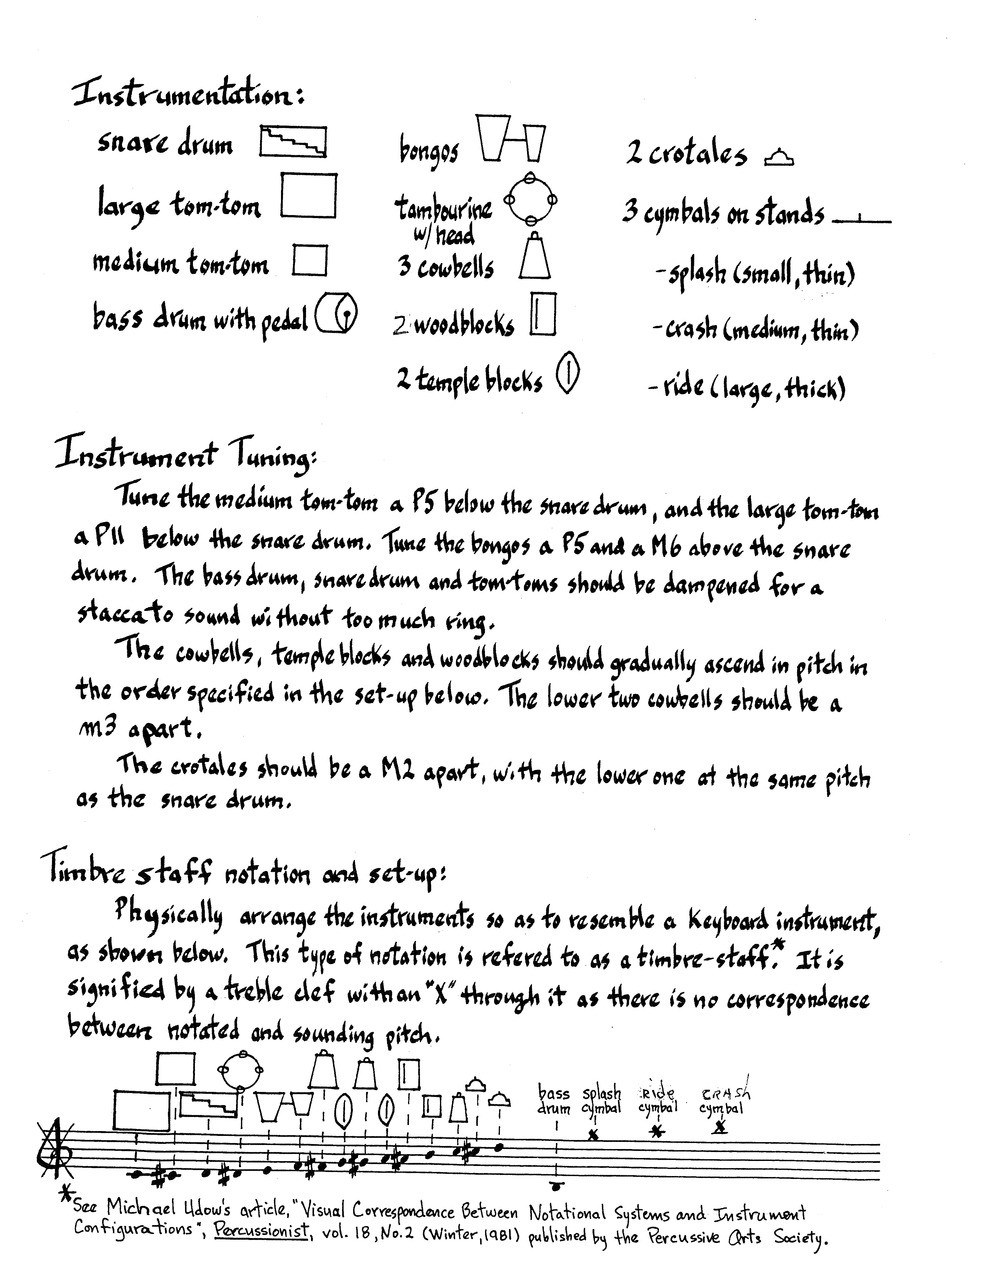 Instrumentation:
snare drum
large tom-tom
medium tom-tom
bass drum with pedal
bongos
tambourine
w/head
3 cowbells
2 woodblocks
2 temple blocks
2 crotales
3 cymbals on stands
-splash (small, thin)
-crash (medium, thin)
-ride (large, thick)
Instrument Tuning:
Tune the medium tom-tom a P5 below the snare drum, and the large tom-tom
a P11 below the snare drum. Tune the bongos a P5 and a M6 above the snare
drum. The bass drum, snare drum and tom-toms should be dampened for a
staccato sound without too much ring.
The cowbells, temple blocks and woodblocks should gradually ascend in pitch in
the order specified in the set-up below. The lower two cowbells should be a
m3 apart.
The crotales should be a M2 apart, with the lower one at the same pitch
as the snare drum.
Timbre staff notation and set-up:
Physically arrange the instruments so as to resemble a keyboard instrument,
as shown below. This type of notation is refered to as a timbre-staff.* It is
signified by a treble clef with an "X" through it as there is no correspondence
between notated and sounding pitch.
bass drum
splash cymbal
ride cymbal
CRASH cymbal
*See Michael Udow's article, "Visual Correspondence Between Notational Systems and Instrument
Configurations", Percussionist, vol. 18, No. 2 (Winter, 1981) published by the Percussive Arts Society.